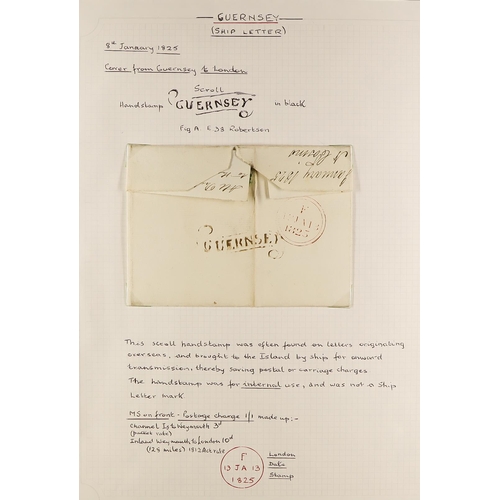 GUERNSEY
(SHIP LETTER)
8th January 1825
Cover from Guernsey to London
Scroll
Handstamp GUERNSEY in black
Fig A E 38 Robertson
January 1825
GUERNSEY
F
JA
1825
This scroll handstamp was often found on letters originating
overseas, and brought to the Island by ship for onward
transmission, thereby saving postal or carriage charges
The handstamp was for internal use, and was not a Ship
Letter mark.
MS on front - Postage charge 1/1 made up:-
Channel Is to Weymouth 3d
(packet rate)
Inland Weymouth to London 10d
(128 miles) 1812 Act rate
F
13 JA 13
1825
London
Date
Stamp